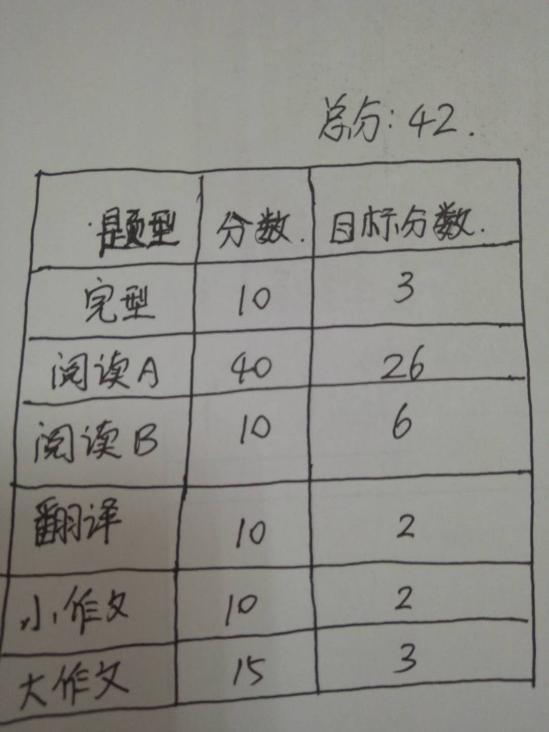 总分:42.
题型 分数. 目标分数.
完型 10 3
阅读A 40 26
阅读B 10 6
翻译 10 2
小作文 10 2
大作文 15 3